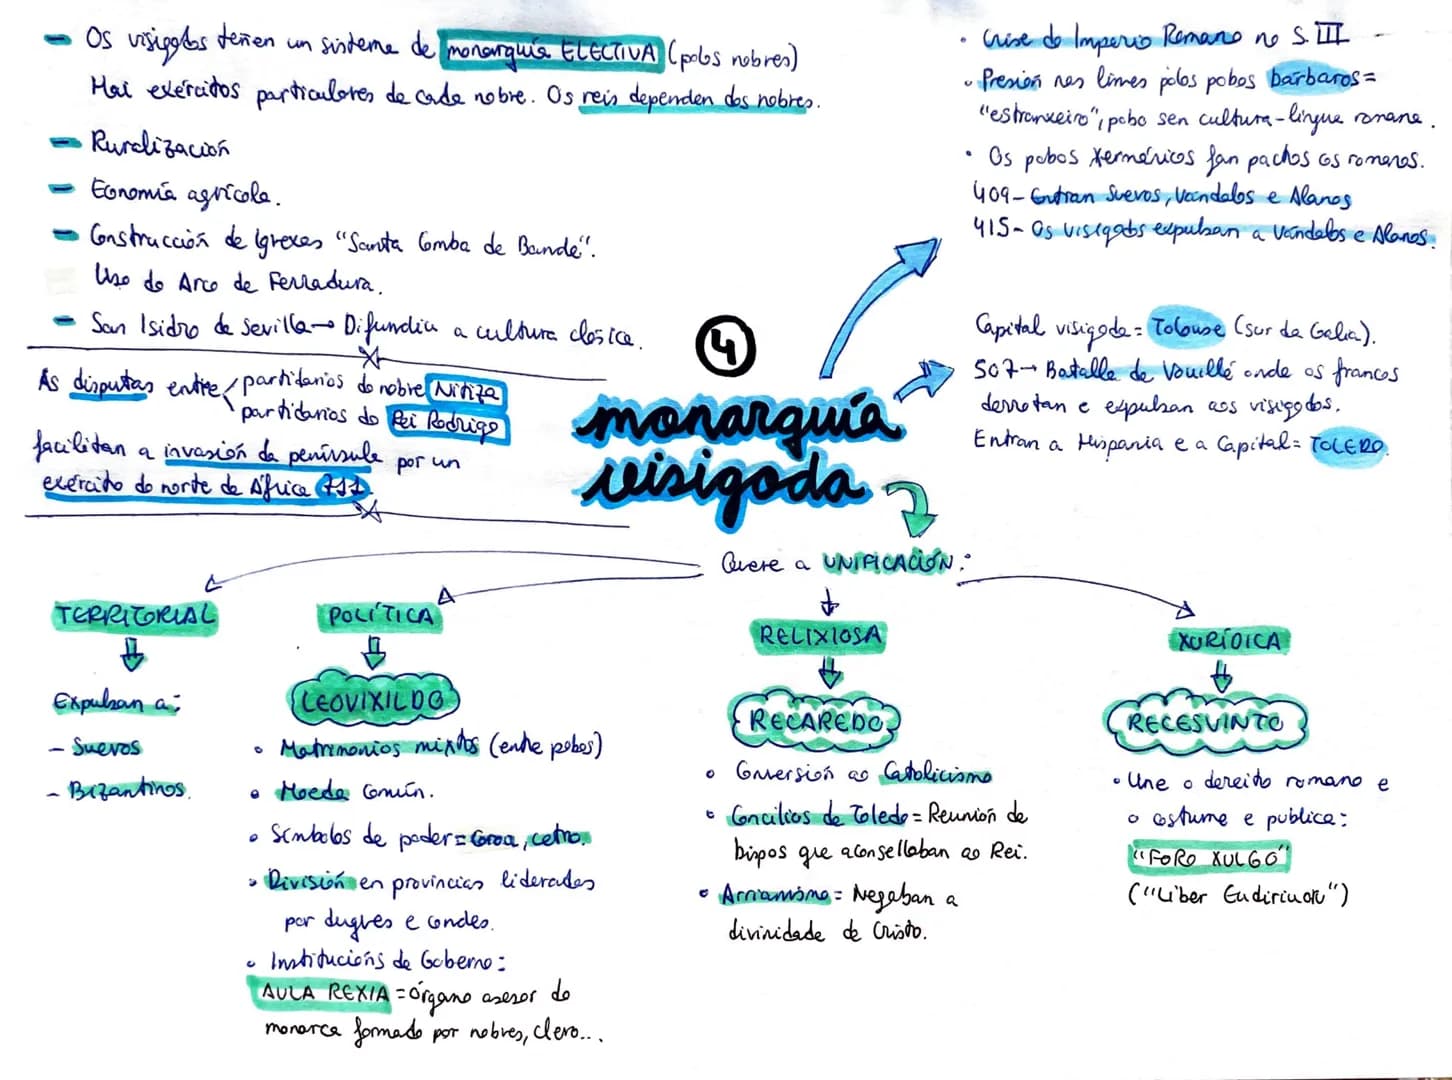 - Os visigodos teñen un sistema de monarquía ELECTIVA (polos nobres)
Hai exércitos particulares de cada nobre. Os reis dependen dos nobres.
- Ruralización
- Economía agrícola.
- Construcción de Igrexas "Santa Comba de Bande".
Uso do Arco de Ferradura.
- San Isidro de Sevilla → Difundía a cultura clásica.
As disputas entre partidarios do nobre Witiza
partidarios do Rei Rodrigo
facilitan a invasión da península por un
exército do norte de África 711.
• Crise do Imperio Romano no S. III
• Presión nas limes polos pobos bárbaros =
"estranxeiro", pobo sen cultura-lingua romana.
• Os pobos xermánicos fan pactos cos romanos.
409- Entran Suevos, Vándalos e Alanos
415- Os visigodos expulsan a Vándalos e Alanos.
Capital visigoda = Tolouse (sur da Galia).
507 → Batalla de Vouillé onde os francos
derrotan e expulsan aos visigodos.
Entran a Hispania e a Capital = TOLEDO.
4
monarquía
visigoda
Quere a UNIFICACIÓN:
TERRITORIAL
Expulsan a:
- Suevos
- Bizantinos.
POLÍTICA
LEOVIXILDO
• Matrimonios mixtos (entre pobos)
• Moeda Común.
• Símbolos de poder = Coroa, cetro.
• División en provincias lideradas
por duques e condes.
• Institucións de Goberno:
AULA REXIA = órgano asesor do
monarca formado por nobres, clero...
RELIXIOSA
RECAREDO
• Conversión ao Catolicismo
• Concilios de Toledo = Reunión de
bispos que aconsellaban ao Rei.
• Arrianismo = Negaban a
divinidade de Cristo.
XURÍDICA
RECESVINTO
• Une o dereito romano e
o costume e publica:
"FORO XULGO"
("Liber Iudiciorum")